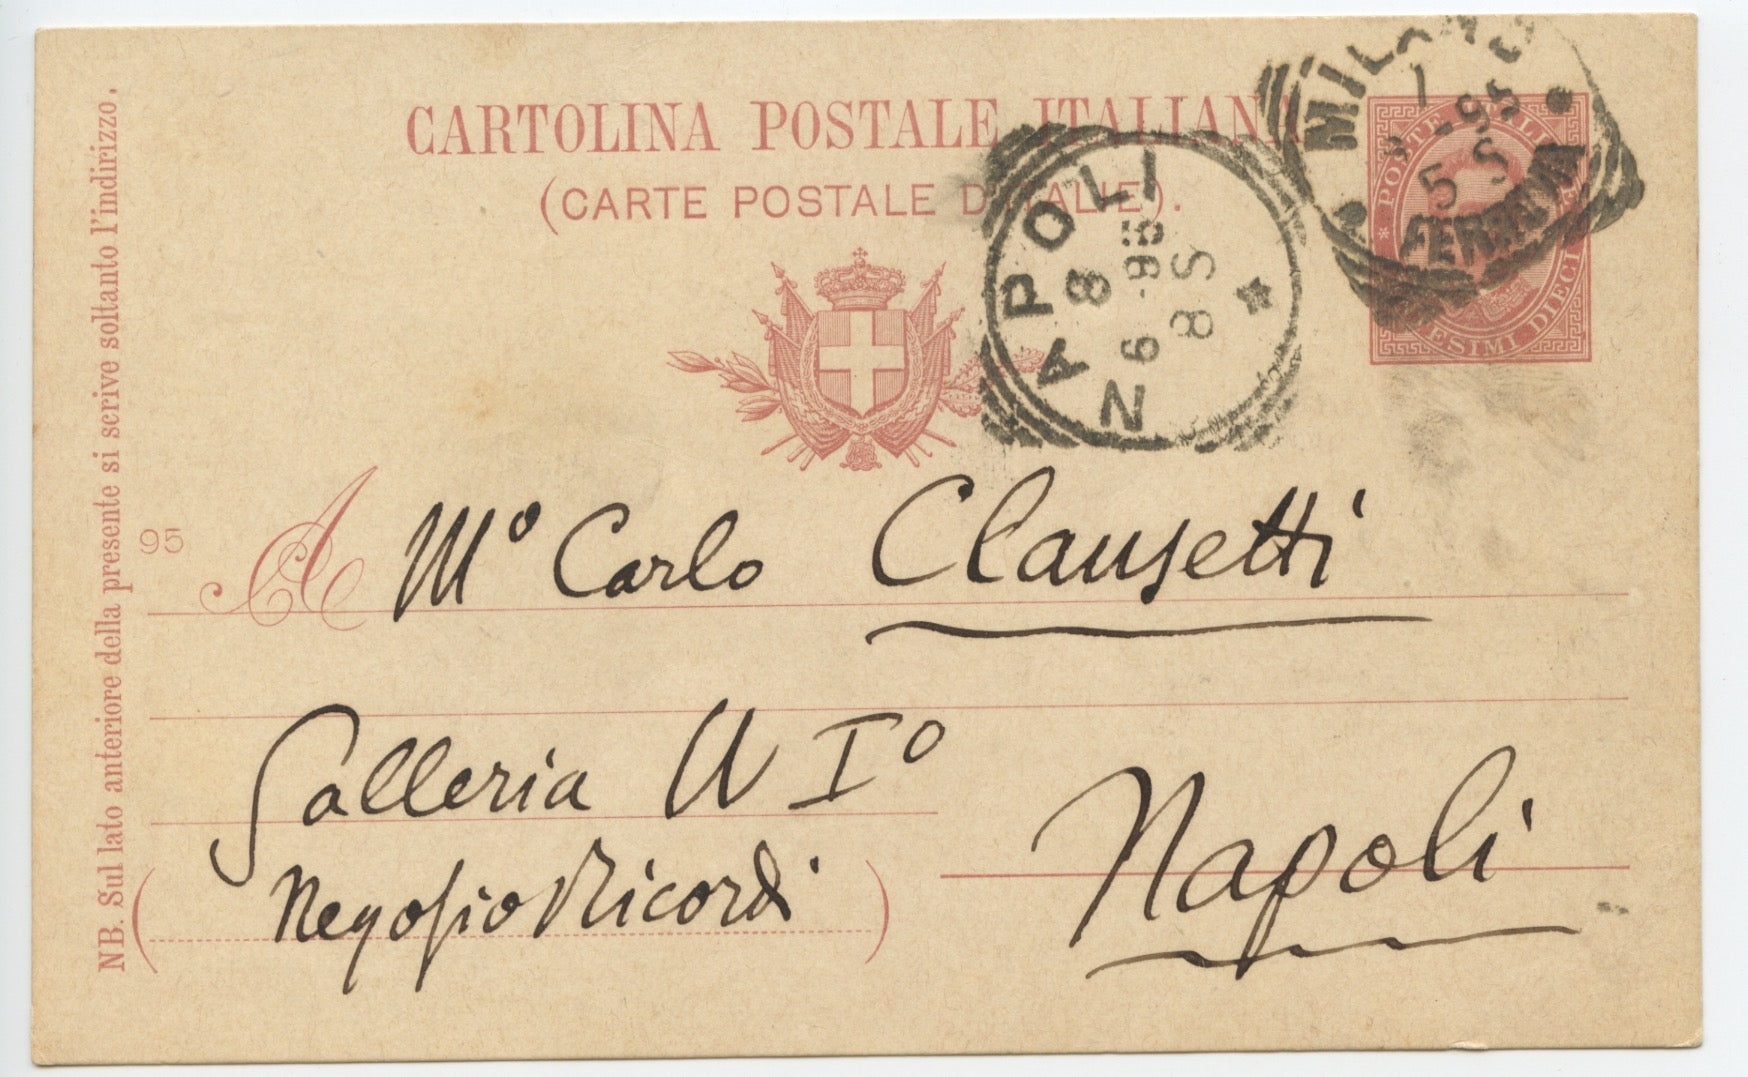 CARTOLINA POSTALE ITALIANA
(CARTE POSTALE D'ITALIE).
MILANO
1
8 - 95
5 S
FERROVIA
POSTE ITALI
ESIMI DIECI
NAPOLI
8
6 - 95
8 S
NB. Sul lato anteriore della presente si scrive soltanto l'indirizzo.
95
A Mº Carlo Clausetti
Galleria U Iº
Negozio Ricordi
Napoli